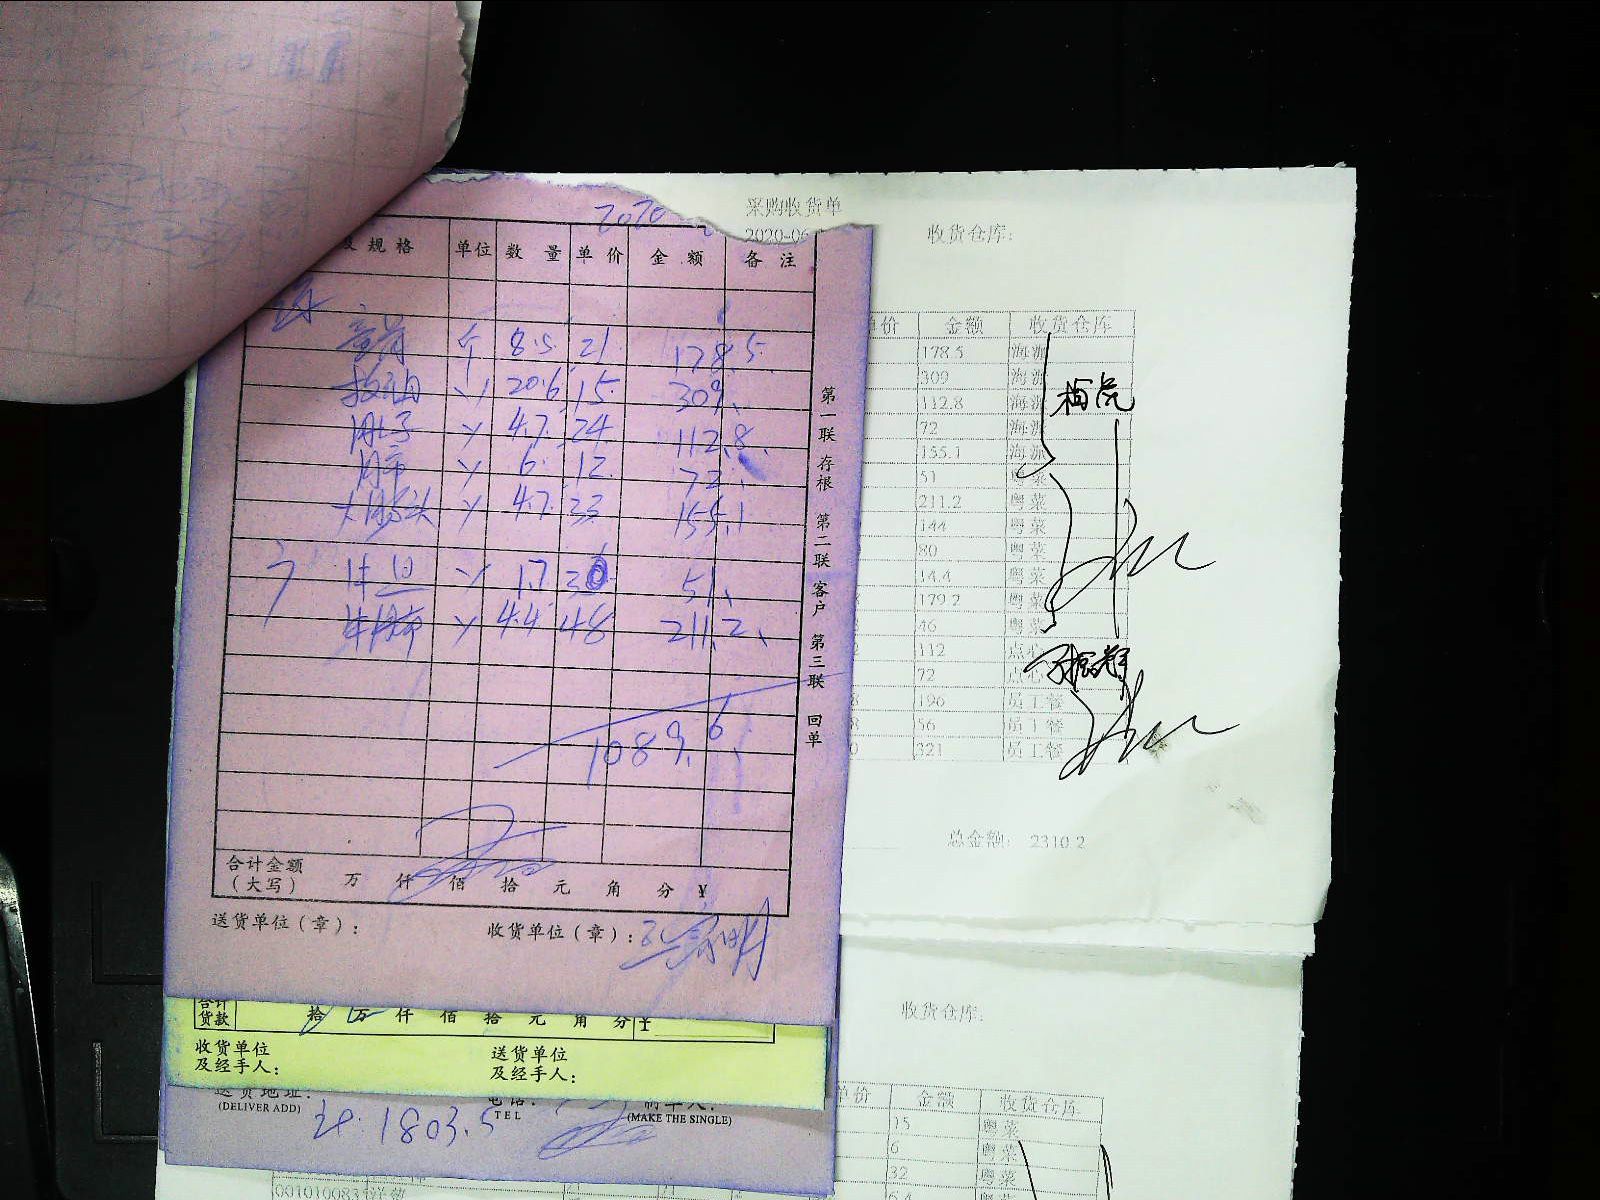 2020
采购收货单
2020-06
收货仓库:
规格 单位 数量 单价 金额 备注
个 8.5 21 178.5
20.6 15 309
肚子 4.7 24 112.8
6 12 72
大肠头 4.7 33 155.1
1.7 30 51
4.4 48 211.2
1089.6
第一联存根 第二联客户 第三联 回单
合计金额
(大写) 万 仟 佰 拾 元 角 分 ¥
送货单位(章): 收货单位(章):
单价 金额 收货仓库
178.5 海派
309 海派
112.8 海派
72 海派
155.1 海派
51 粤菜
211.2 粤菜
144 粤菜
80 粤菜
14.4 粤菜
179.2 粤菜
46 粤菜
112 点心
72 点心
196 员工餐
56 员工餐
321 员工餐
总金额: 2310.2
合计
货款 拾 万 仟 佰 拾 元 角 分 ¥
收货单位
及经手人:
送货单位
及经手人:
送货地址:
(DELIVER ADD)
电话:
TEL
制单人:
(MAKE THE SINGLE)
1803.5
收货仓库:
单价 金额 收货仓库
15 粤菜
6 粤菜
32 粤菜
001010083